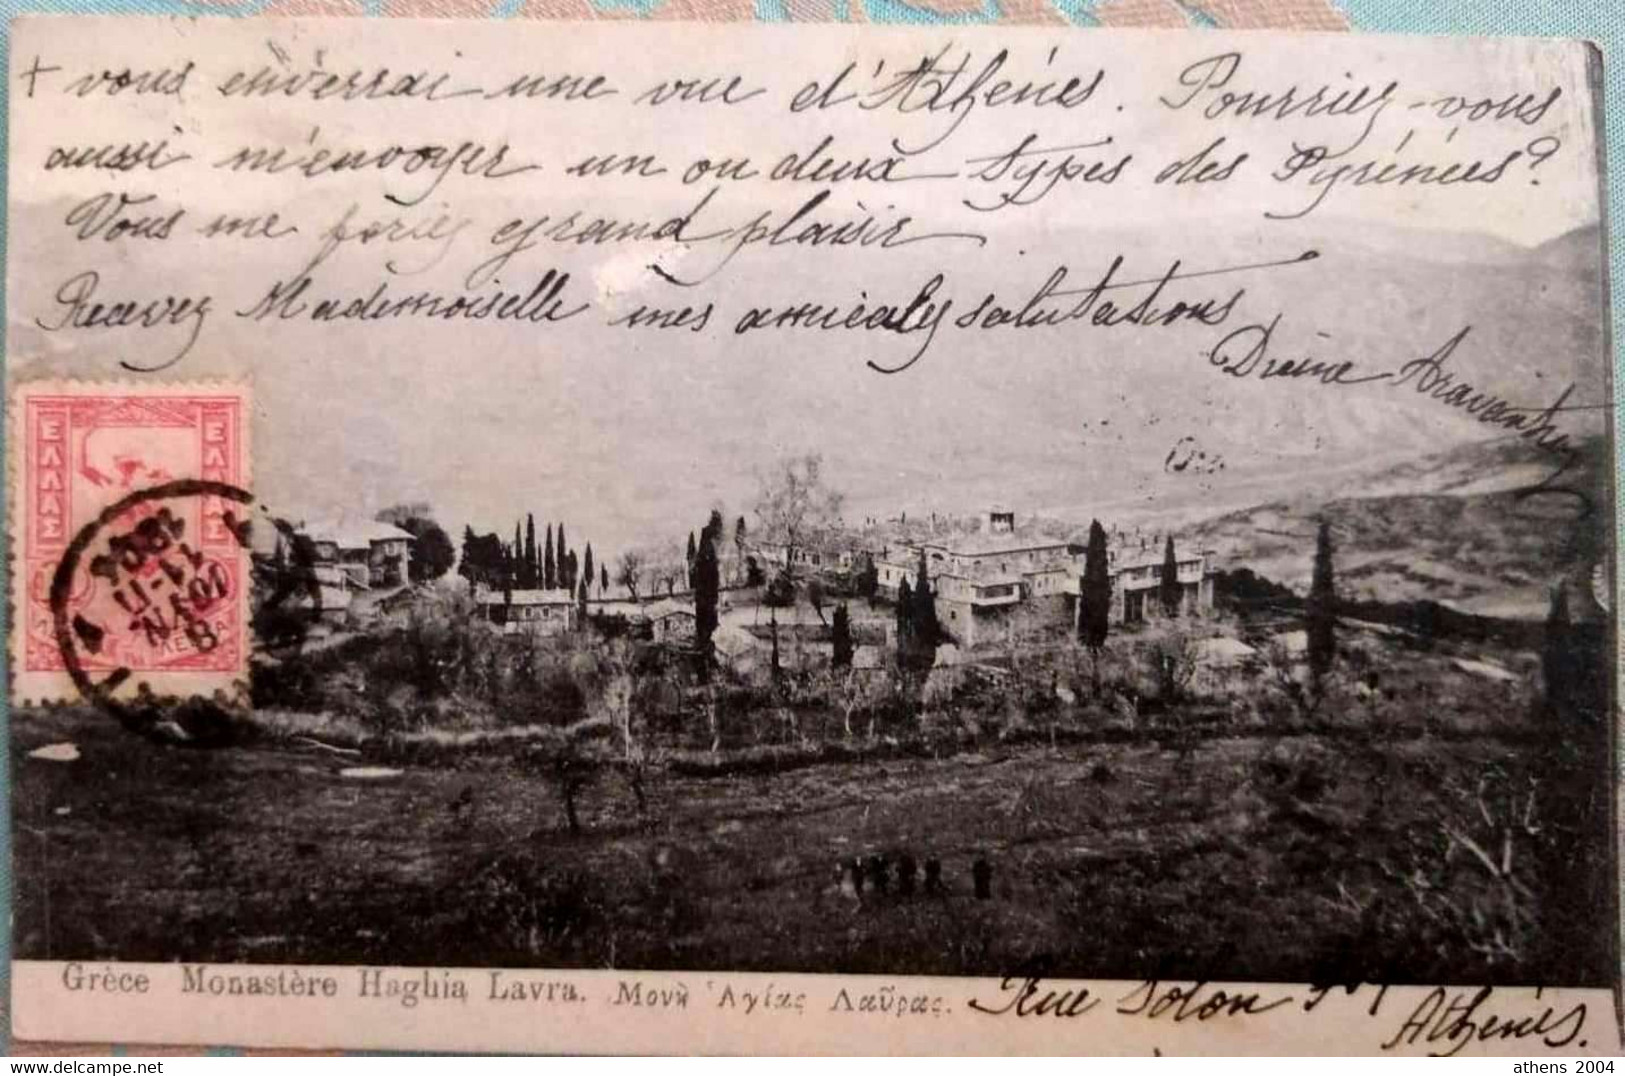 + vous enverrai une vue d'Athénes. Pourriez-vous
aussi m'envoyer un ou deux types des Pyrénées?
Vous me feriez grand plaisir
Recevez Mademoiselle mes amicales salutations
Aravantin
ΕΛΛΑΣ
ΕΛΛΑΣ
Grèce Monastère Haghia Lavra. Μονὴ Ἁγίας Λαῦρας.
Rue Solon
Athènes.
athens 2004